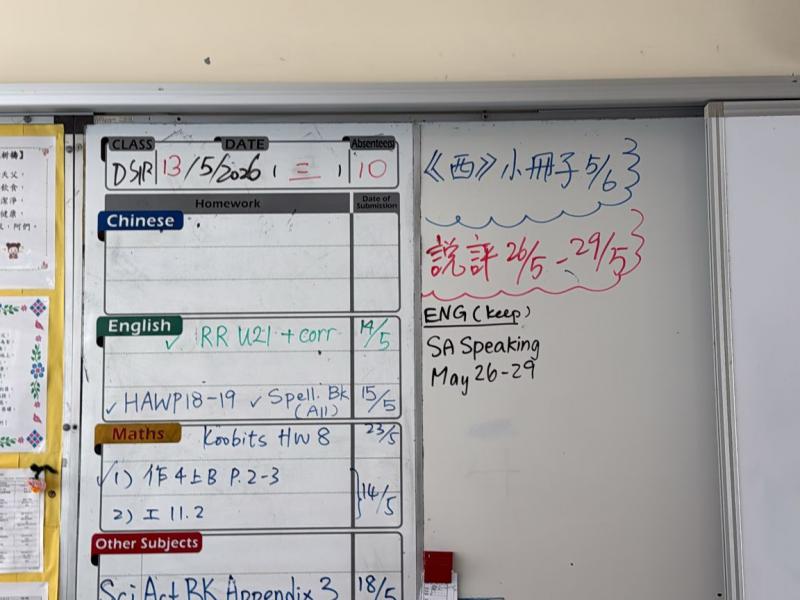 CLASS DATE Absentees
D5IR 13/5/2026, 三, 10
Homework Date of Submission
Chinese
English
✓ RR U21 + corr 14/5
✓ HAWP18-19 ✓ Spell. Bk (All) 15/5
Maths Koobits HW 8 23/5
✓ 1) 作 4上B P.2-3
2) 工 11.2 } 14/5
Other Subjects
Sci Act BK Appendix 3 18/5
《西》小冊子 5/6
説評 26/5 - 29/5
ENG (keep)
SA Speaking
May 26-29
天父,
飲食,
潔淨,
健康,
,阿們。